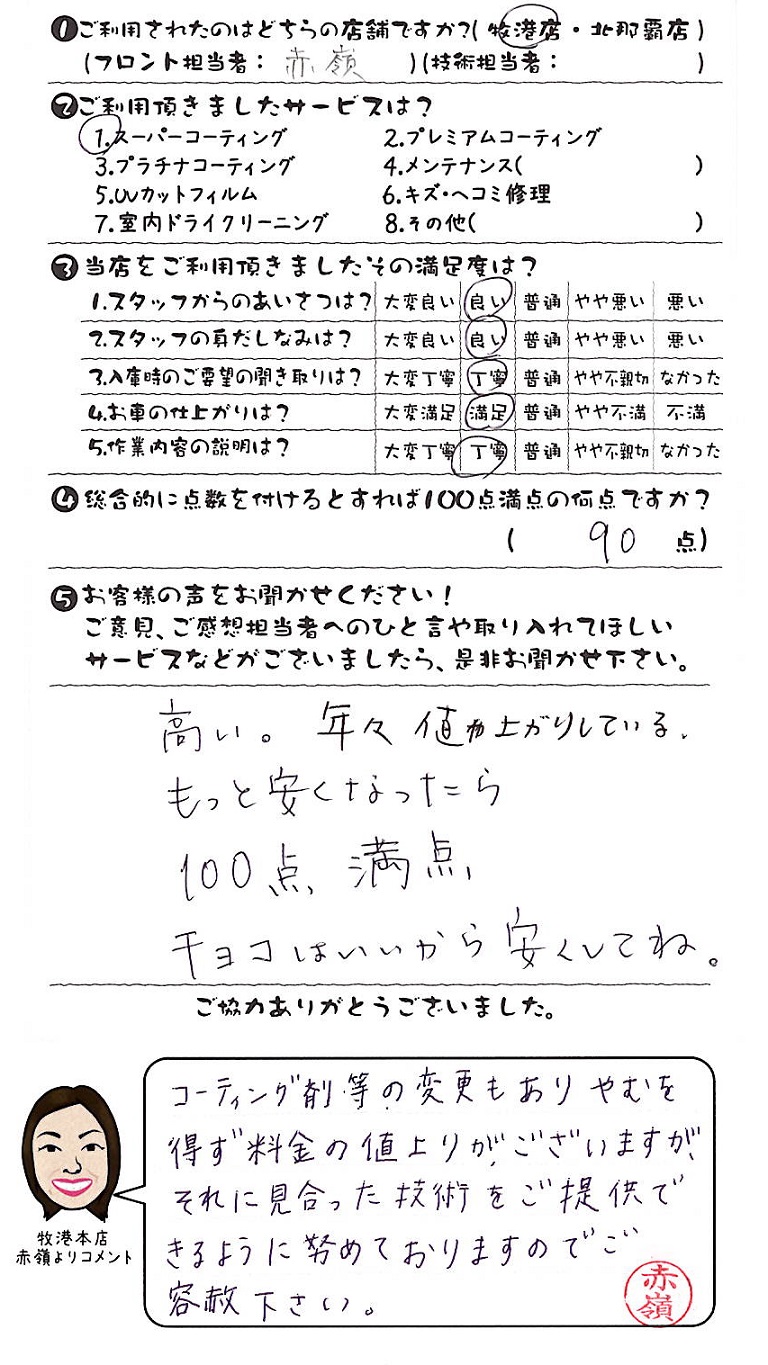 ❶ご利用されたのはどちらの店舗ですか?(牧港店・北那覇店)
(フロント担当者: 赤嶺 )(技術担当者: )
❷ご利用頂きましたサービスは?
1.スーパーコーティング 2.プレミアムコーティング
3.プラチナコーティング 4.メンテナンス( )
5.UVカットフィルム 6.キズ・ヘコミ修理
7.室内ドライクリーニング 8.その他( )
❸当店をご利用頂きましたその満足度は?
1.スタッフからのあいさつは? 大変良い 良い 普通 やや悪い 悪い
2.スタッフの身だしなみは? 大変良い 良い 普通 やや悪い 悪い
3.入庫時のご要望の聞き取りは? 大変丁寧 丁寧 普通 やや不親切 なかった
4.お車の仕上がりは? 大変満足 満足 普通 やや不満 不満
5.作業内容の説明は? 大変丁寧 丁寧 普通 やや不親切 なかった
❹総合的に点数を付けるとすれば100点満点の何点ですか?
( 90 点)
❺お客様の声をお聞かせください!
ご意見、ご感想担当者へのひと言や取り入れてほしい
サービスなどがございましたら、是非お聞かせ下さい。
高い。年々値上がりしている、
もっと安くなったら
100点、満点、
チョコはいいから安くしてね。
ご協力ありがとうございました。
コーティング剤等の変更もありやむを
得ず料金の値上りがございますが、
それに見合った技術をご提供で
きるように努めておりますのでご
容赦下さい。
赤嶺
牧港本店
赤嶺よりコメント